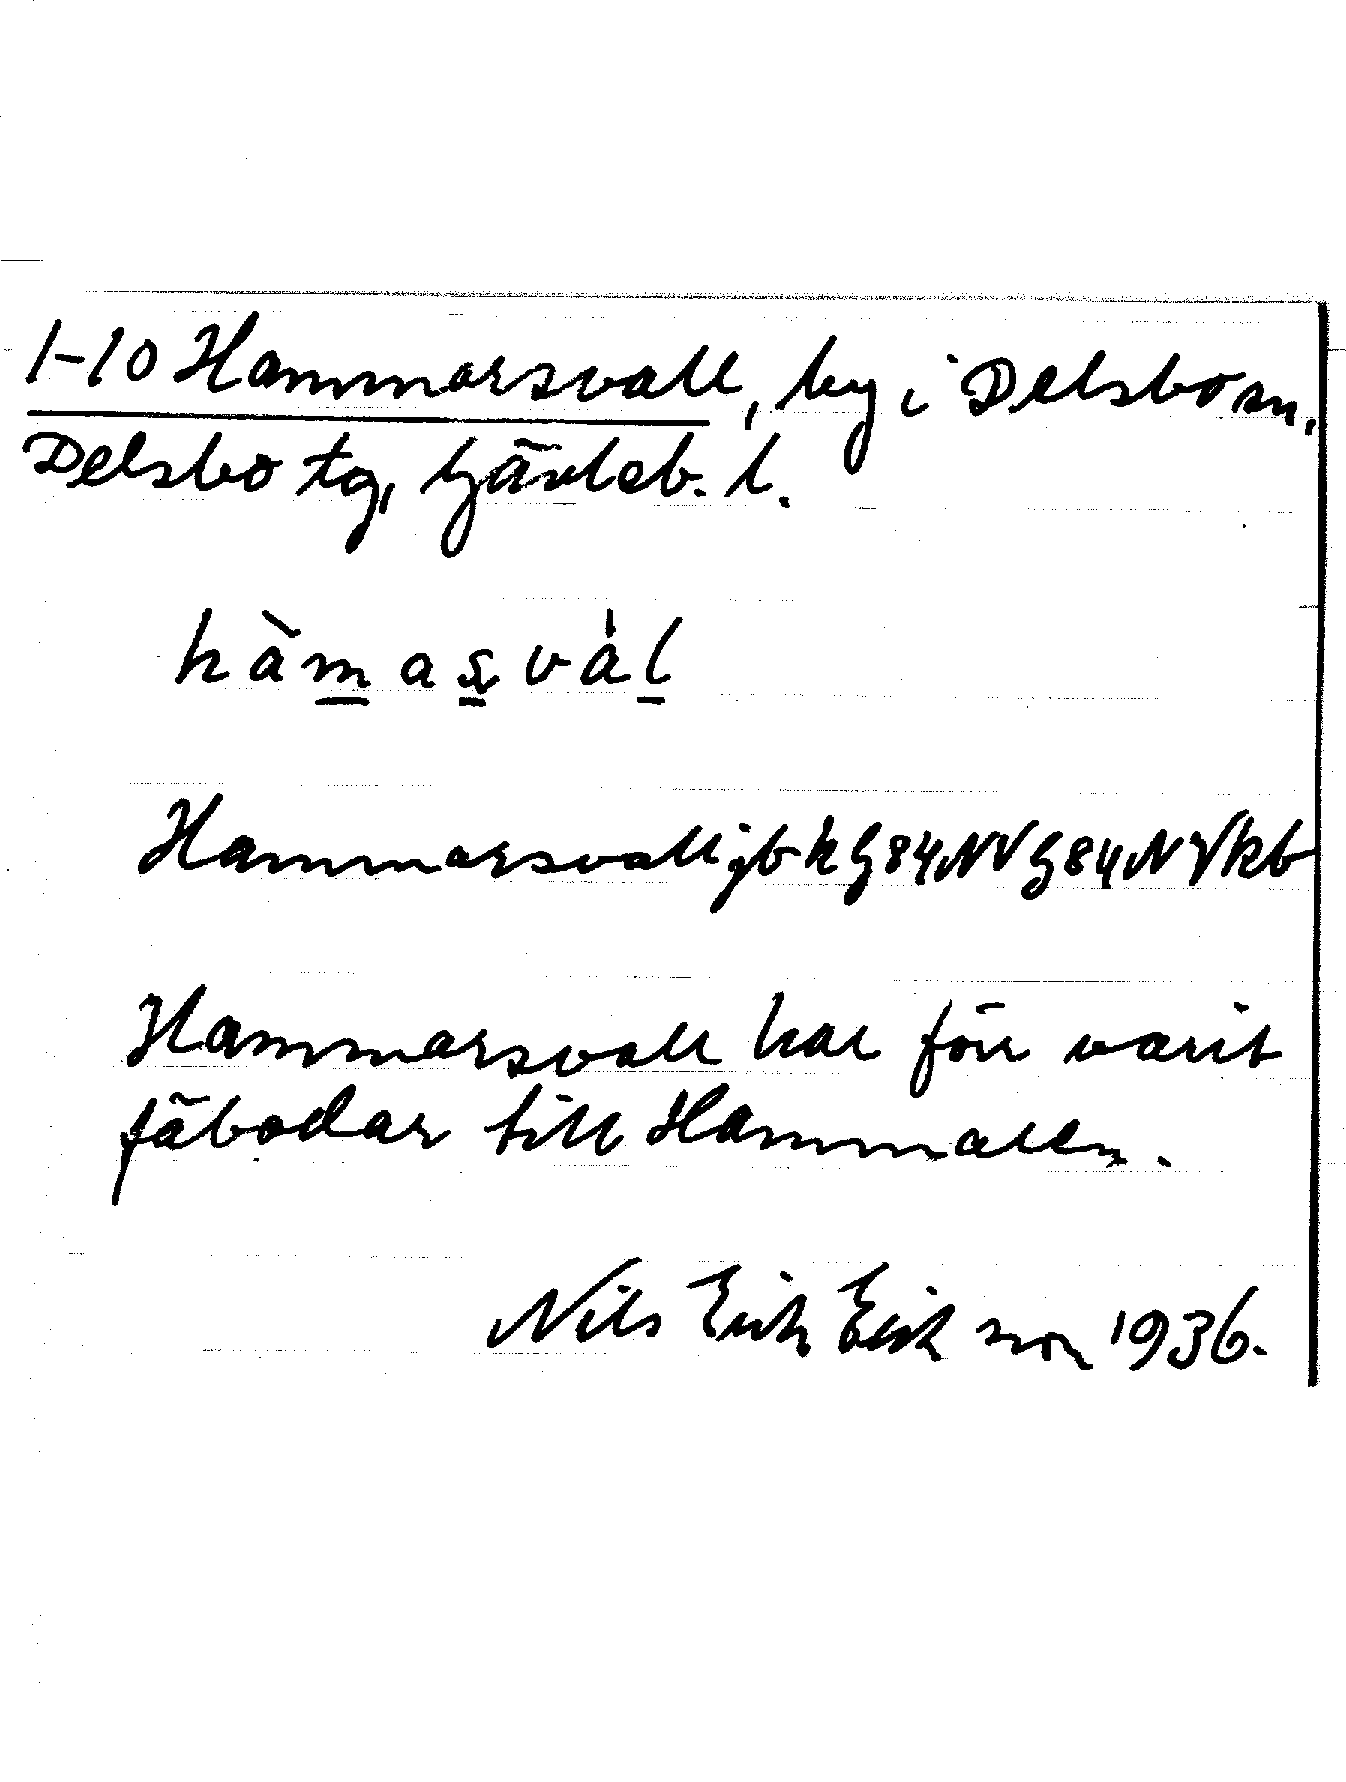 1-10 Hammarsvall, by i Delsbo sn,
Delsbo tg, Gävleb. l.
hàmaṣvál
Hammarsvall jb k G84NV G84NV kb
Hammarsvall har förr varit
fäbodar till Hammaren.
Nils Erik Eriksson 1936.